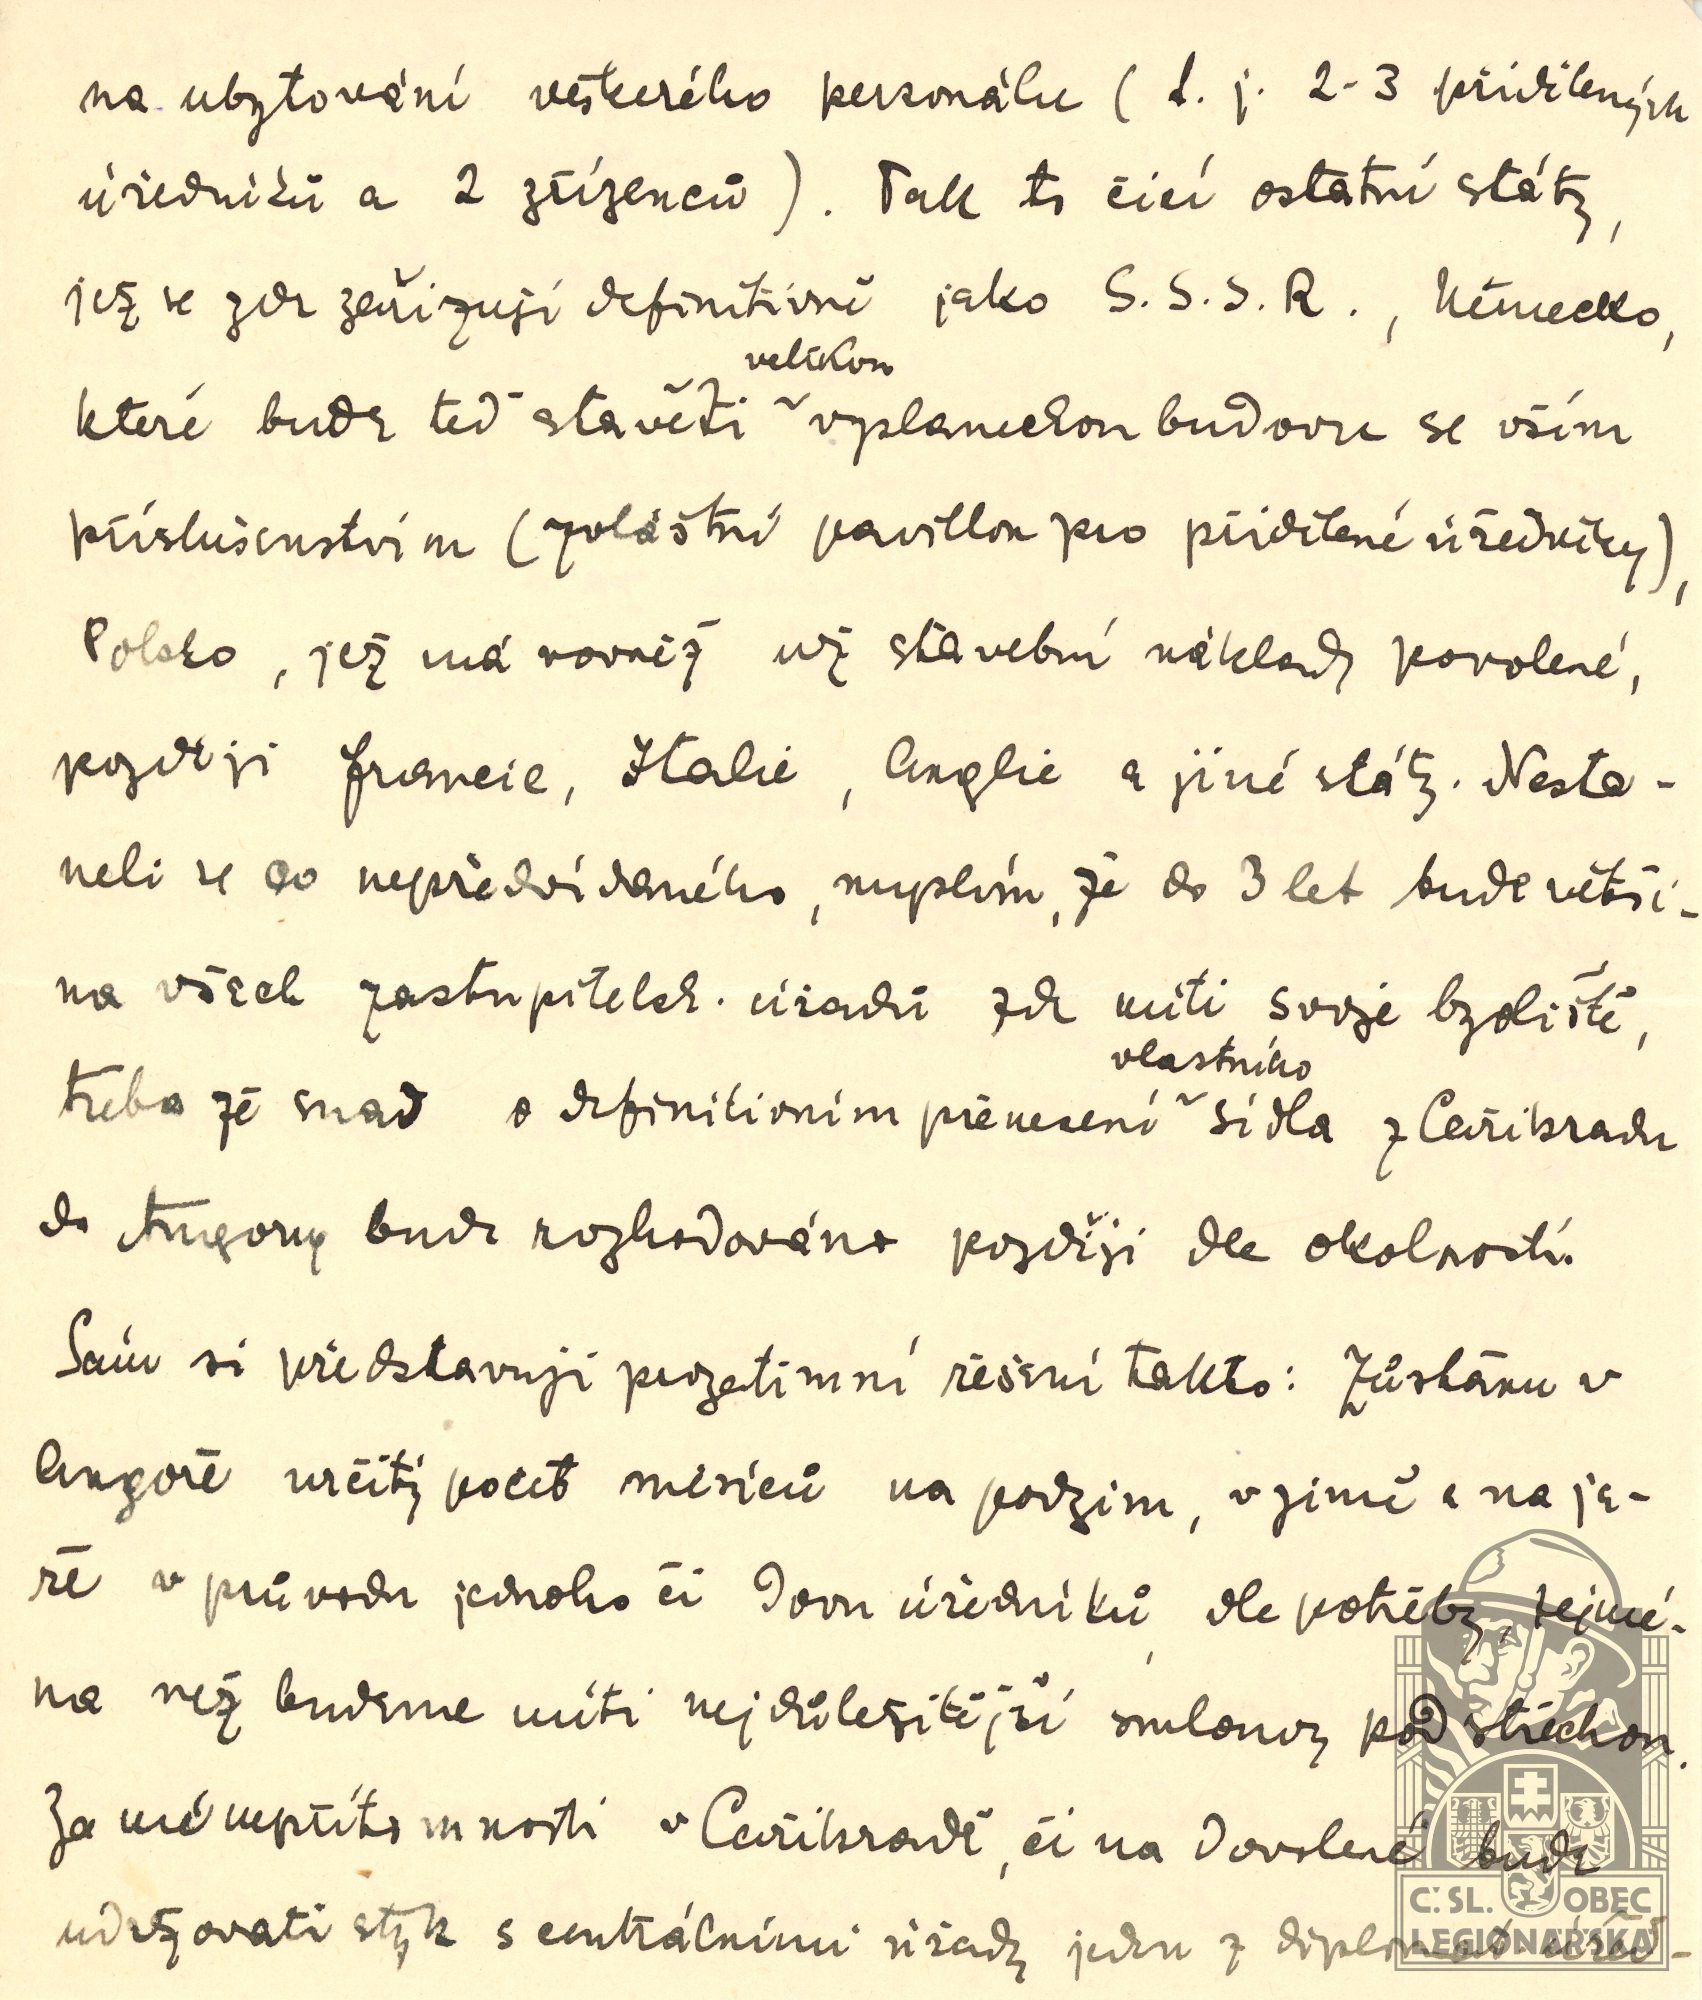 na ubytování veškerého personálu (t. j. 2-3 přidělených
úředníků a 2 zřízenců). Tak to činí ostatní státy,
jež se zde zařizují definitivně jako S.S.S.R., Německo,
velikou
které bude teď stavěti vyslaneckou budovu se vším
příslušenstvím (zvláštní pavillon pro přidělené úředníky),
Polsko, jež má rovněž už stavební náklady povolené,
později Francie, Italie, Anglie a jiné státy. Nesta-
neli se co nepředvídaného, myslím, že do 3 let bude větši-
na všech zastupitelsk. úřadů zde míti svoje bydliště,
vlastního
třeba že snad o definitivním přenesení sídla z Cařihradu
do Angory bude rozhodováno později dle okolností.
Sám si představuji prozatimní řešení takto: Zůstanu v
Angoře určitý počet měsíců na podzim, v zimě a na ja-
ře v průvodu jednoho či dvou úředníků, dle potřeby, zejmé-
na než budeme míti nejdůležitější smlouvy pod střechou.
Za mé nepřítomnosti v Cařihradě, či na dovolené bude
udržovati styk s centrálními úřady jeden z diplomat. úřed-
Č. SL. OBEC
LEGIONÁŘSKÁ